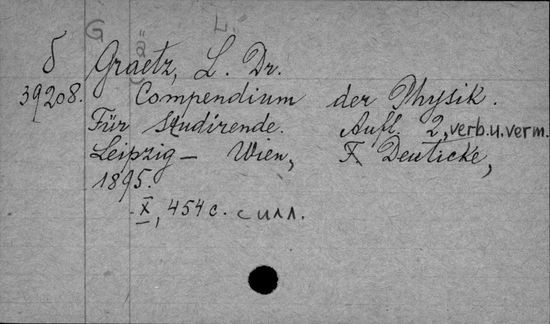 G L.
б Graetz, L. Dr.
39208. Compendium der Physik.
Für Studirende. Aufl. 2, verb. u. verm.
Leipzig – Wien, F. Deuticke,
1895.
X, 454 с. с илл.